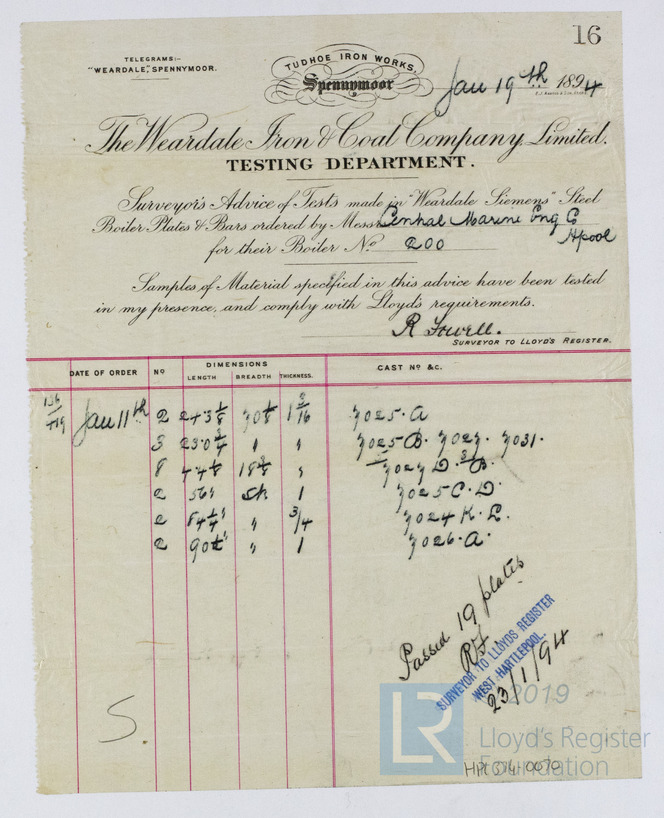 16
TELEGRAMS:-
"WEARDALE", SPENNYMOOR.
TUDHOE IRON WORKS,
Spennymoor Jan 19th 1894
The Weardale Iron & Coal Company, Limited.
TESTING DEPARTMENT.
Surveyor's Advice of Tests made in "Weardale Siemens" Steel
Boiler Plates & Bars ordered by Messrs Central Marine Eng Co
Hpool
for their Boiler No 200
Samples of Material specified in this advice have been tested
in my presence, and comply with Lloyd's requirements.
R Fowell.
SURVEYOR TO LLOYD'S REGISTER.
DATE OF ORDER No DIMENSIONS CAST No &c.
LENGTH BREADTH THICKNESS.
Jan 11th 2 24·3 1/8 70 1/8 1 3/16 7025·A
3 23·0 3/4 " " 7025B· 7027· 7031·
8 4·4 1/8 18 3/8 " 7027 D· B·
2 56" 1 7025 C·D·
2 84 1/4" " 3/4 7024 K·L·
2 " 1 7026·A·
Passed 19 plates
RF
SURVEYOR TO LLOYDS REGISTER
WEST HARTLEPOOL.
23/1/94
S.
2019
LR
Lloyd's Register
Foundation